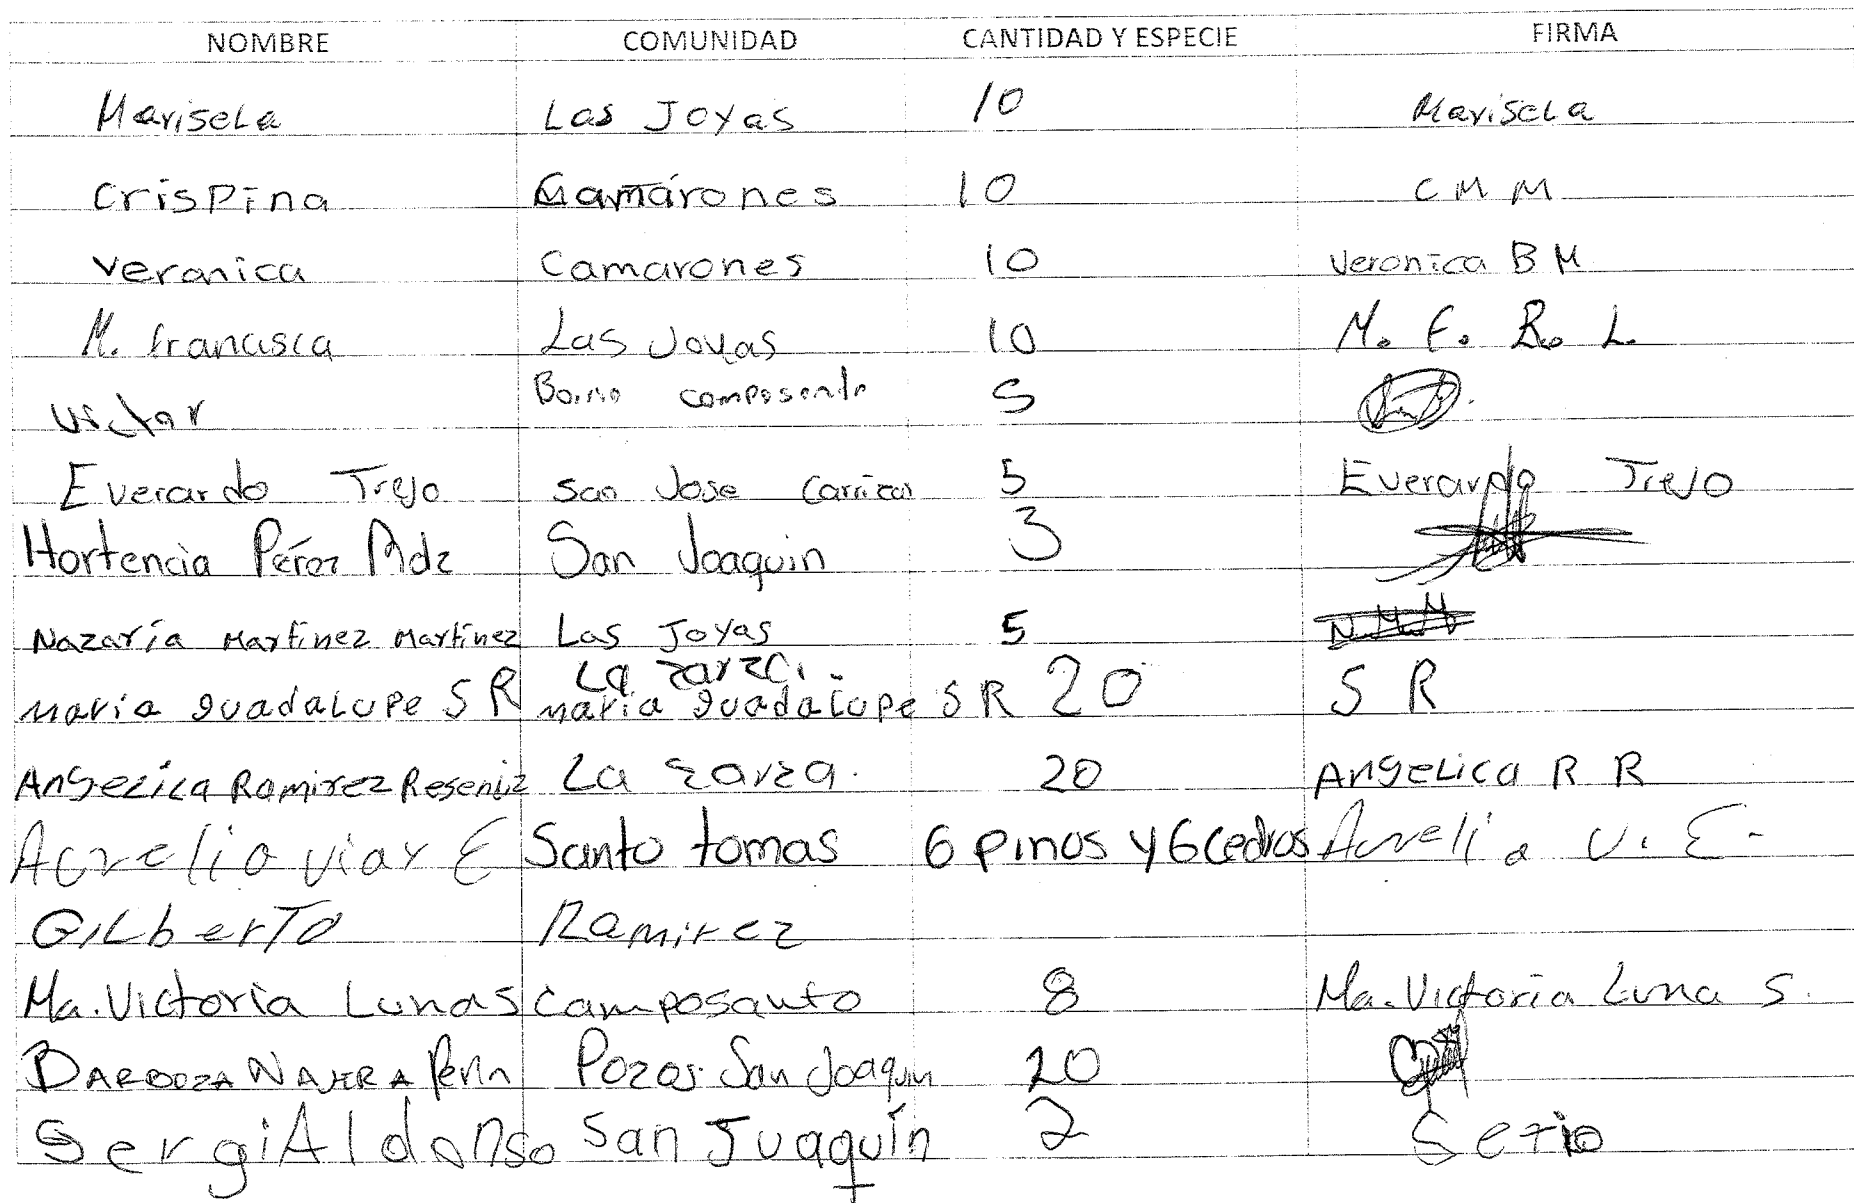 NOMBRE COMUNIDAD CANTIDAD Y ESPECIE FIRMA
Marisela Las Joyas 10 Marisela
Crispina Camarones 10 C M M
Veronica Camarones 10 Veronica B M
M. francisca Las Joyas 10 M. F. R. L.
Victor Barrio camposanto 5
Everardo Trejo San Jose Carrizal 5 Everardo Trejo
Hortencia Pérez Mdz San Joaquin 3
Nazaría Martínez Martínez Las Joyas 5 N.M.M
La zarza.
maria guadalupe S R maria guadalupe S R 20 S R
Angelica Ramirez Reseniz La zarza. 20 Angelica R R
Aurelio viar E Santo tomas 6 pinos y 6 cedros Aurelio V. E.
Gilberto Ramirez
Ma. Victoria Luna S camposanto 8 Ma. Victoria Luna S.
BARBOZA NAJERA Pozos San Joaquin 20
Sergi Aldonso San Juaquín 2 Serio